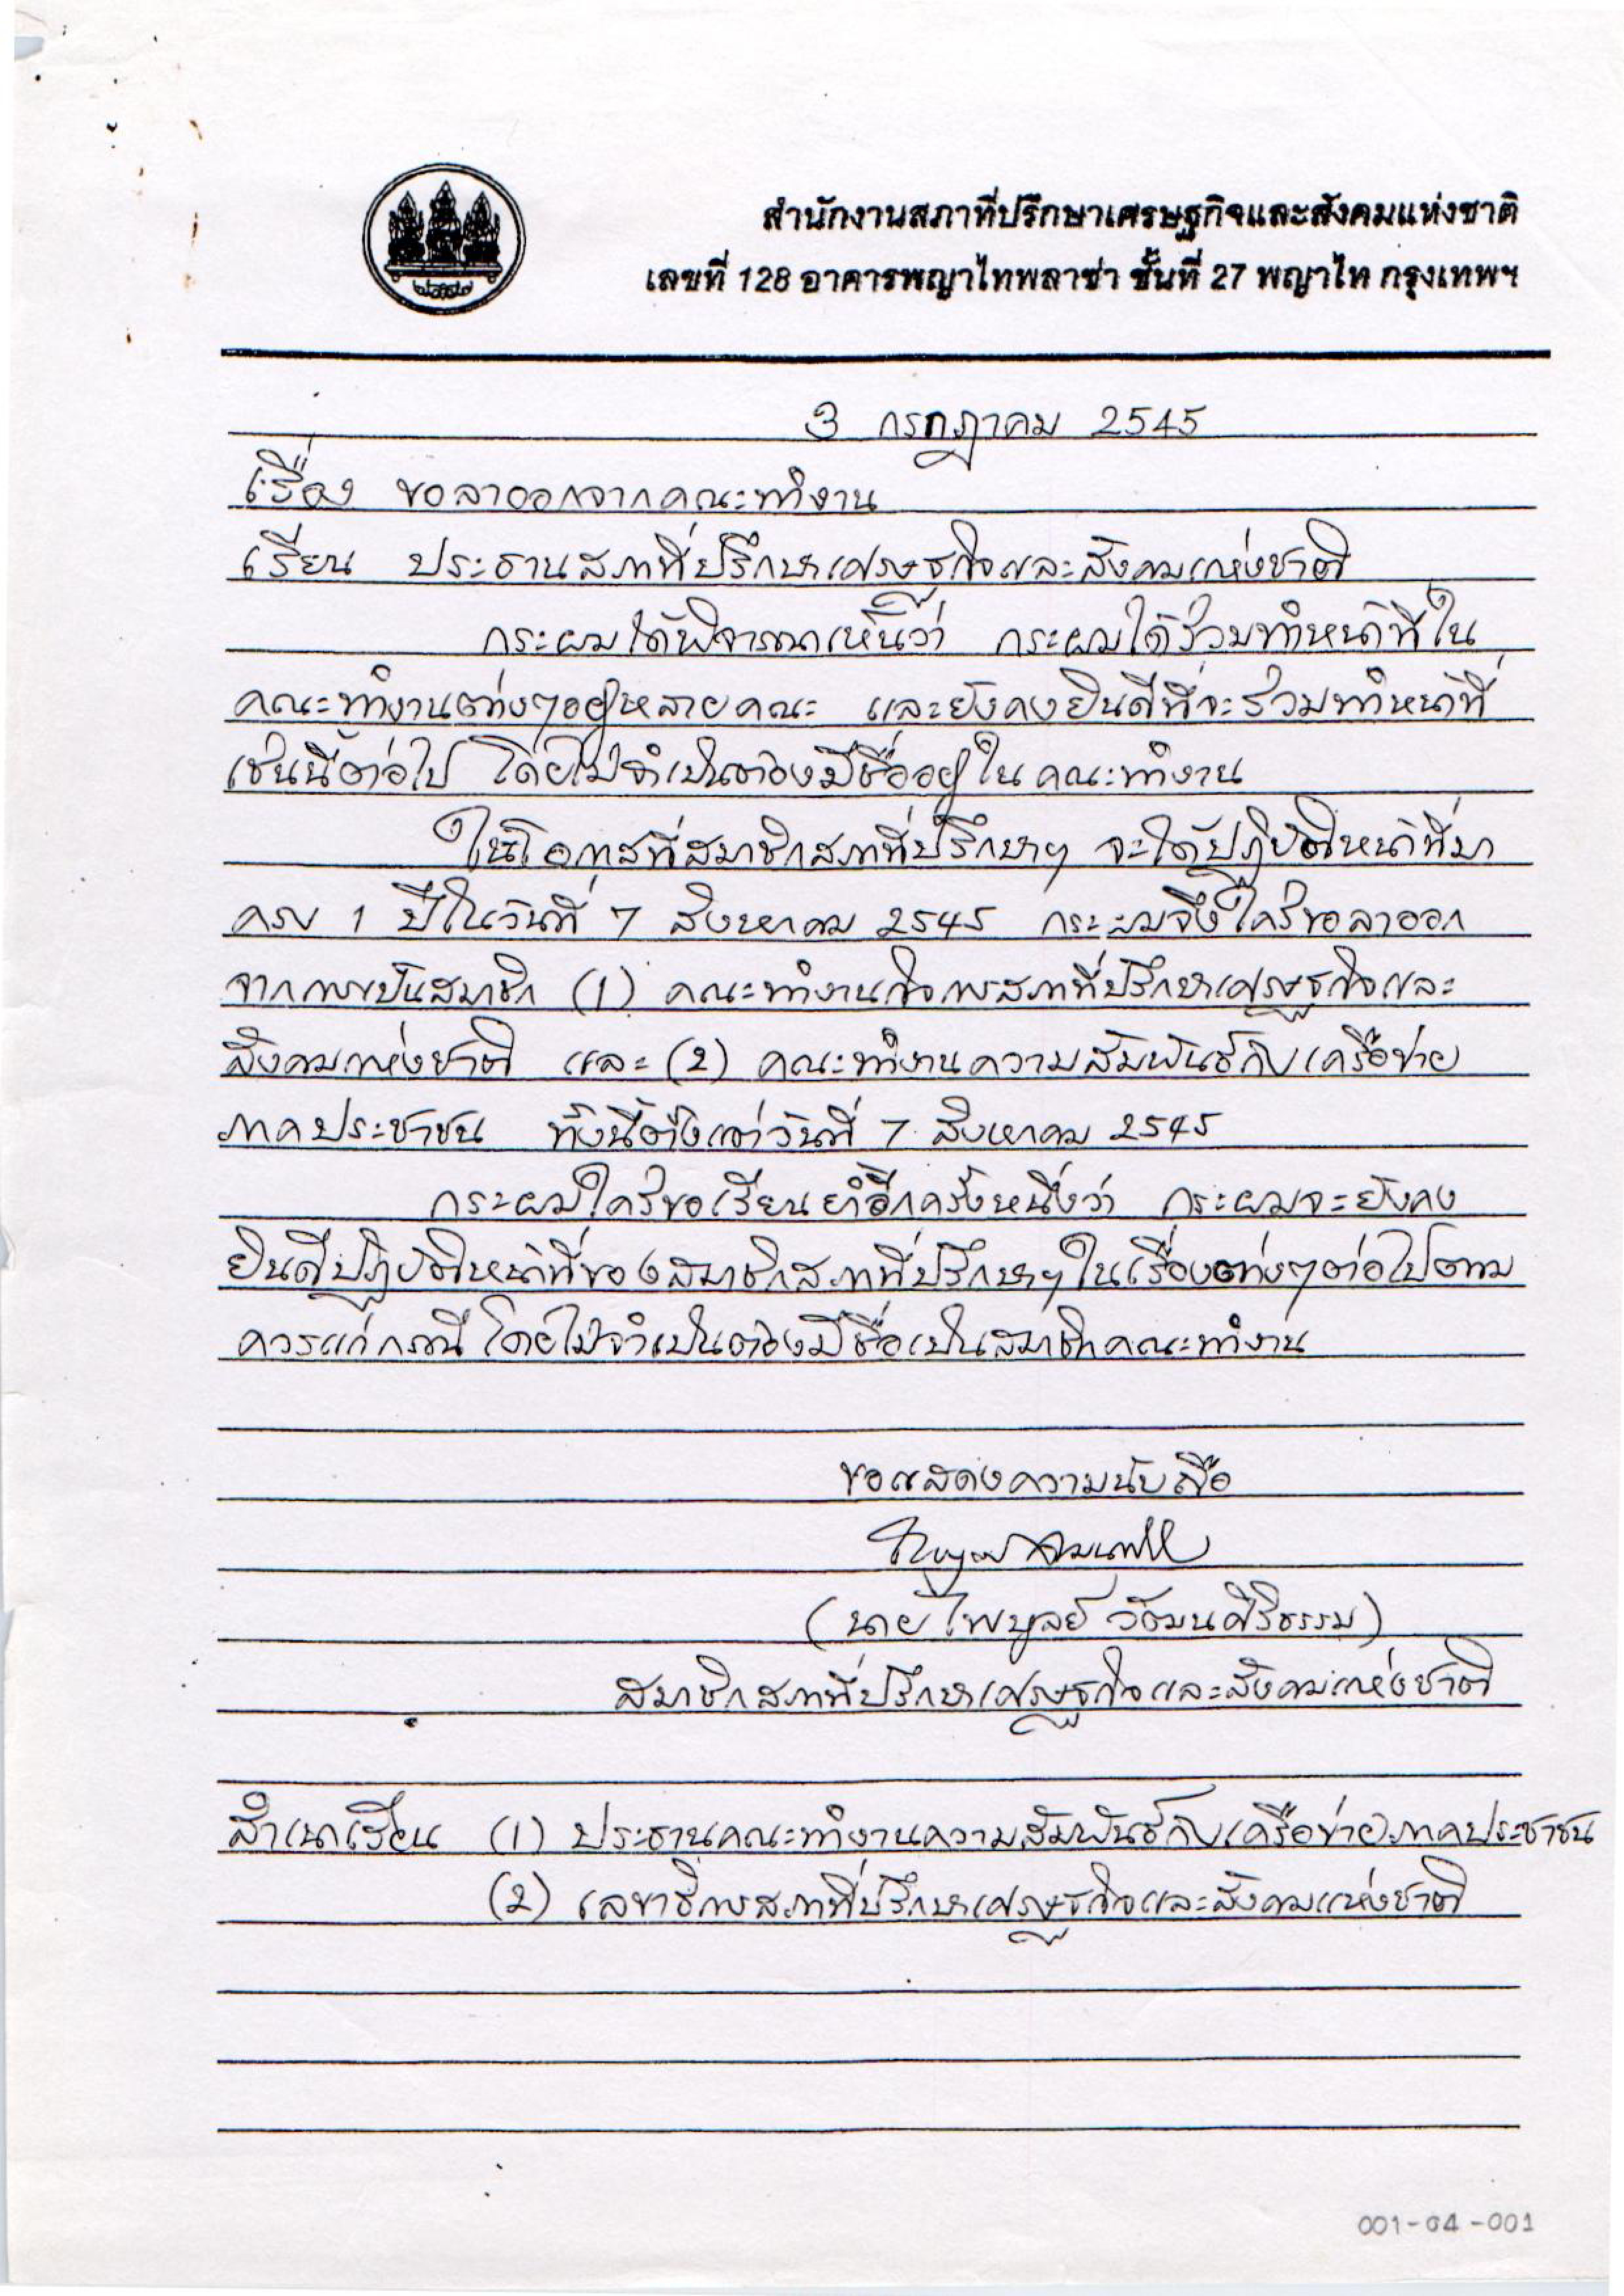 สำนักงานสภาที่ปรึกษาเศรษฐกิจและสังคมแห่งชาติ
เลขที่ 128 อาคารพญาไทพลาซ่า ชั้นที่ 27 พญาไท กรุงเทพฯ
3 กรกฎาคม 2545
เรื่อง ขอลาออกจากคณะทำงาน
เรียน ประธานสภาที่ปรึกษาเศรษฐกิจและสังคมแห่งชาติ
กระผมได้พิจารณาเห็นว่า กระผมได้ร่วมทำหน้าที่ใน
คณะทำงานต่างๆอยู่หลายคณะ และยังคงยินดีที่จะร่วมทำหน้าที่
เช่นนี้ต่อไป โดยไม่จำเป็นต้องมีชื่ออยู่ในคณะทำงาน
ในโอกาสที่สมาชิกสภาที่ปรึกษาฯ จะได้ปฏิบัติหน้าที่มา
ครบ 1 ปีในวันที่ 7 สิงหาคม 2545 กระผมจึงใคร่ขอลาออก
จากการเป็นสมาชิก (1) คณะทำงานกิจการสภาที่ปรึกษาเศรษฐกิจและ
สังคมแห่งชาติ และ (2) คณะทำงานความสัมพันธ์กับเครือข่าย
ภาคประชาชน ทั้งนี้ตั้งแต่วันที่ 7 สิงหาคม 2545
กระผมใคร่ขอเรียนย้ำอีกครั้งหนึ่งว่า กระผมจะยังคง
ยินดีปฏิบัติหน้าที่ของสมาชิกสภาที่ปรึกษาฯในเรื่องต่างๆต่อไปตาม
ควรแก่กรณี โดยไม่จำเป็นต้องมีชื่อเป็นสมาชิกคณะทำงาน
ขอแสดงความนับถือ
(นายไพบูลย์ วัฒนศิริธรรม)
สมาชิกสภาที่ปรึกษาเศรษฐกิจและสังคมแห่งชาติ
สำเนาเรียน (1) ประธานคณะทำงานความสัมพันธ์กับเครือข่ายภาคประชาชน
(2) เลขาธิการสภาที่ปรึกษาเศรษฐกิจและสังคมแห่งชาติ
001-04-001